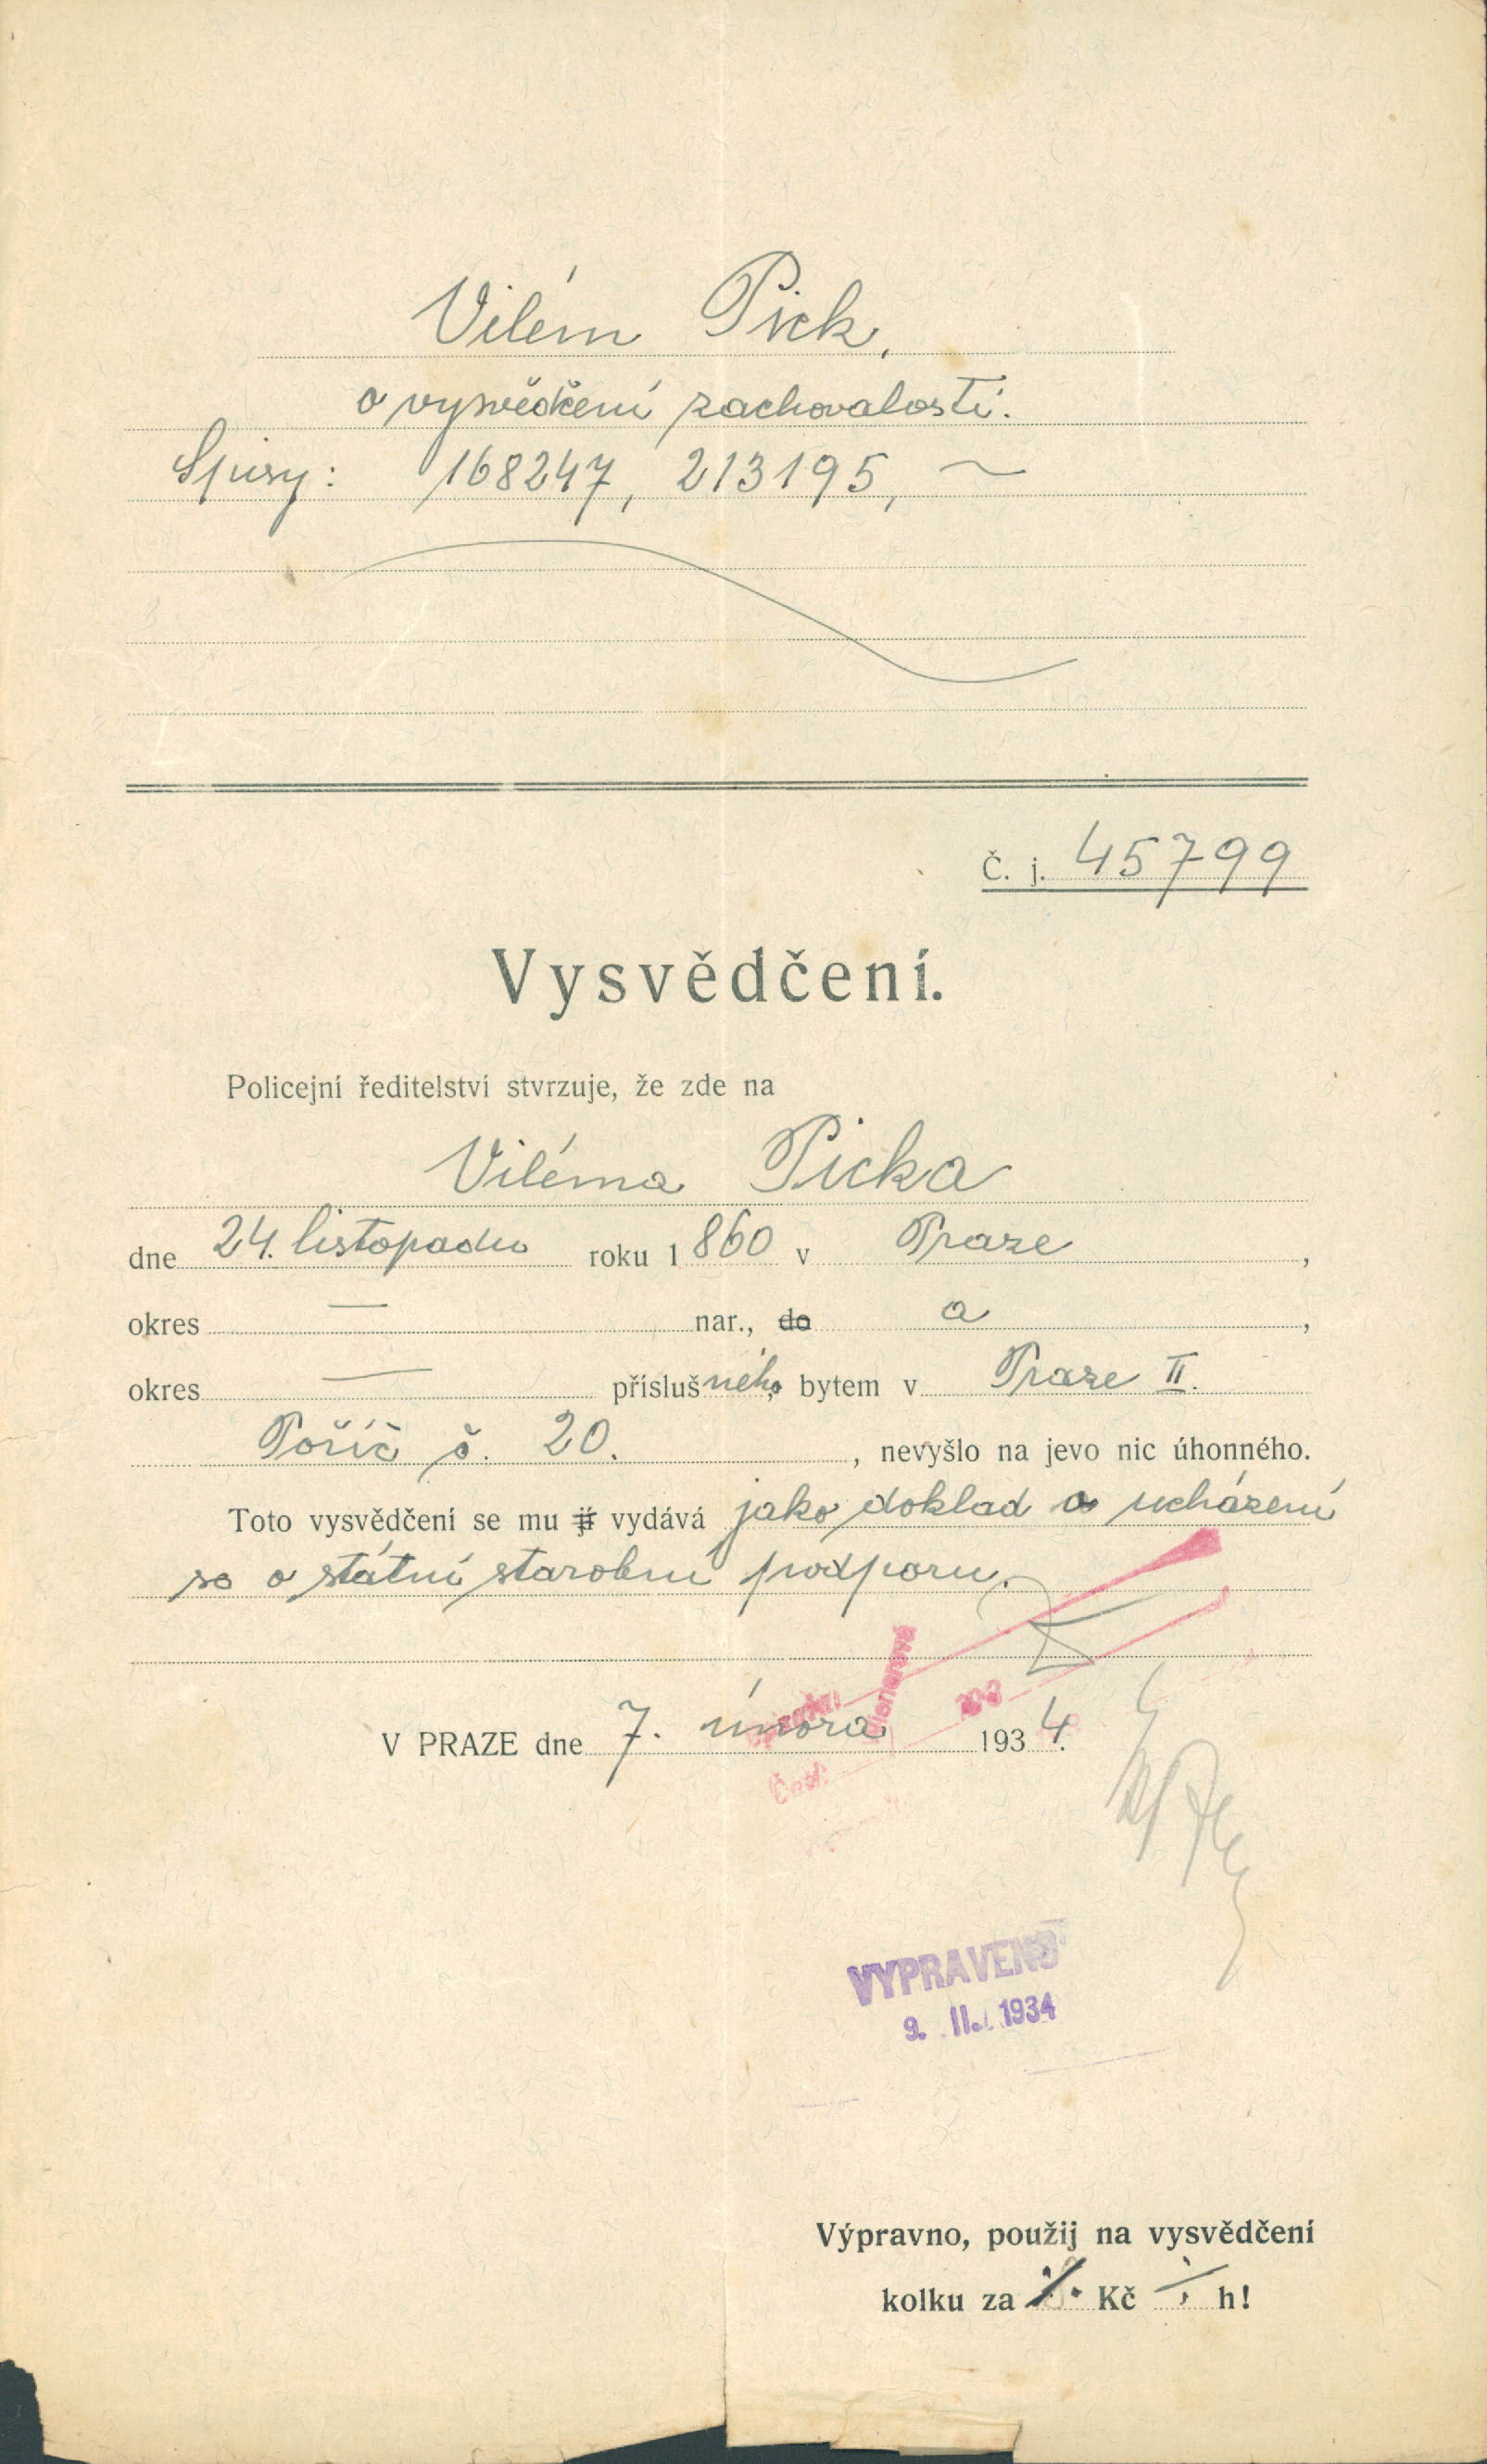 Vilém Pick,
o vysvědčení zachovalosti.
Spisy: 168247, 213195,
Č. j. 45799
Vysvědčení.
Policejní ředitelství stvrzuje, že zde na
Viléma Picka
dne 24. listopadu roku 1 860 v Praze ,
okres — nar., do a ,
okres — přísluš ného, bytem v Praze II.
Poříč č. 20. , nevyšlo na jevo nic úhonného.
Toto vysvědčení se mu jí vydává jako doklad o ucházení
se o státní starobní podporu.
V PRAZE dne 7. února 193 4.
VYPRAVENO
9. II. 1934
Výpravno, použij na vysvědčení
kolku za Kč h!